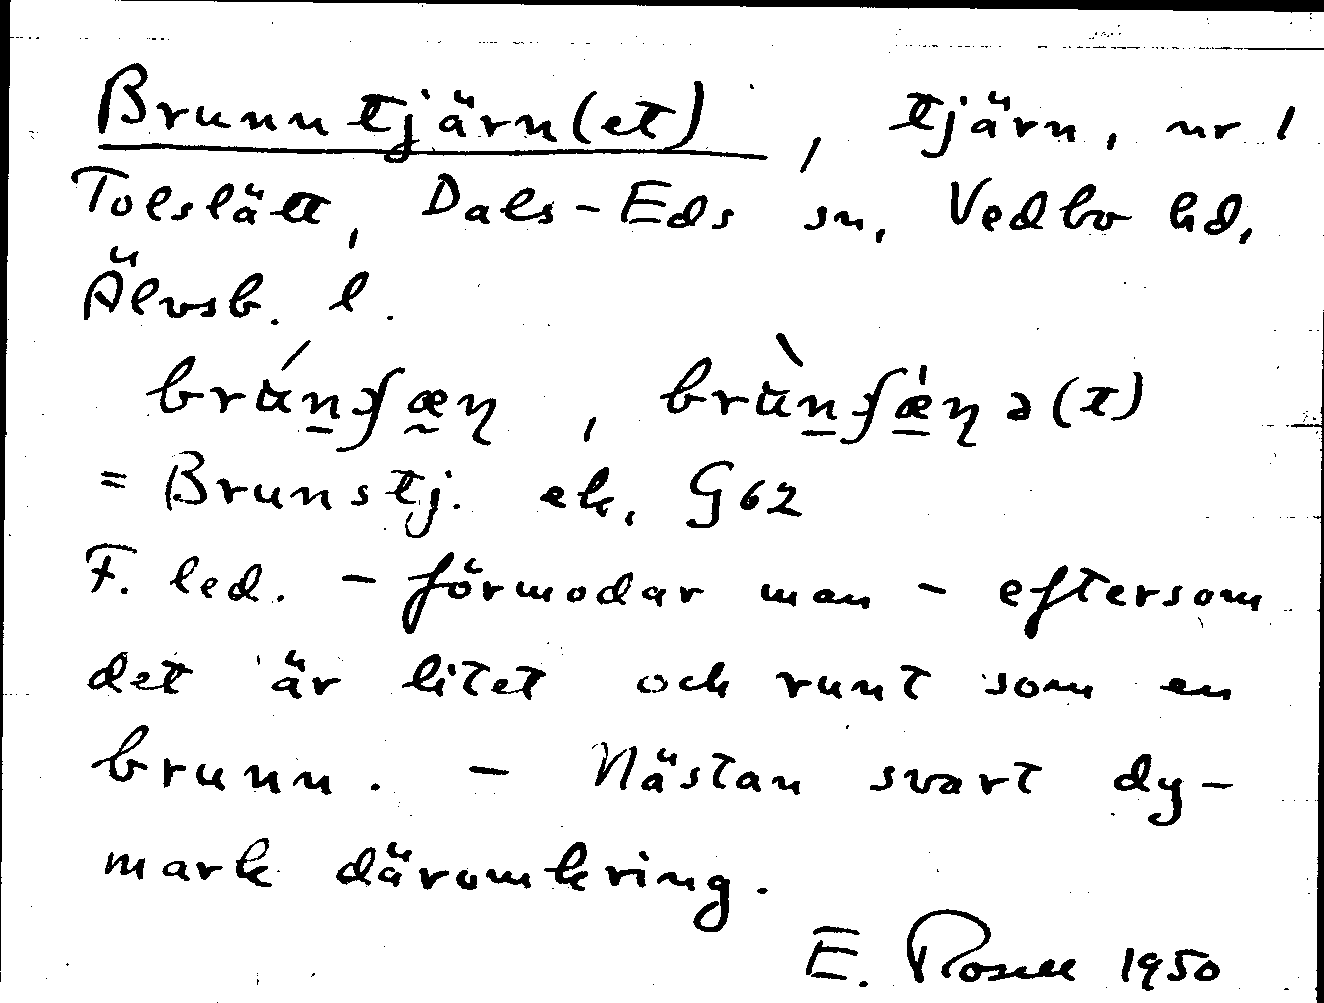 Brunntjärn(et), tjärn, nr 1
Tolslätt, Dals-Eds sn, Vedbo hd,
Älvsb. l.
= Brunstj. ek, G62
F. led. - förmodar man - eftersom
det är litet och runt som en
brunn. - Nästan svart dy-
mark däromkring.
E. Rosell 1950